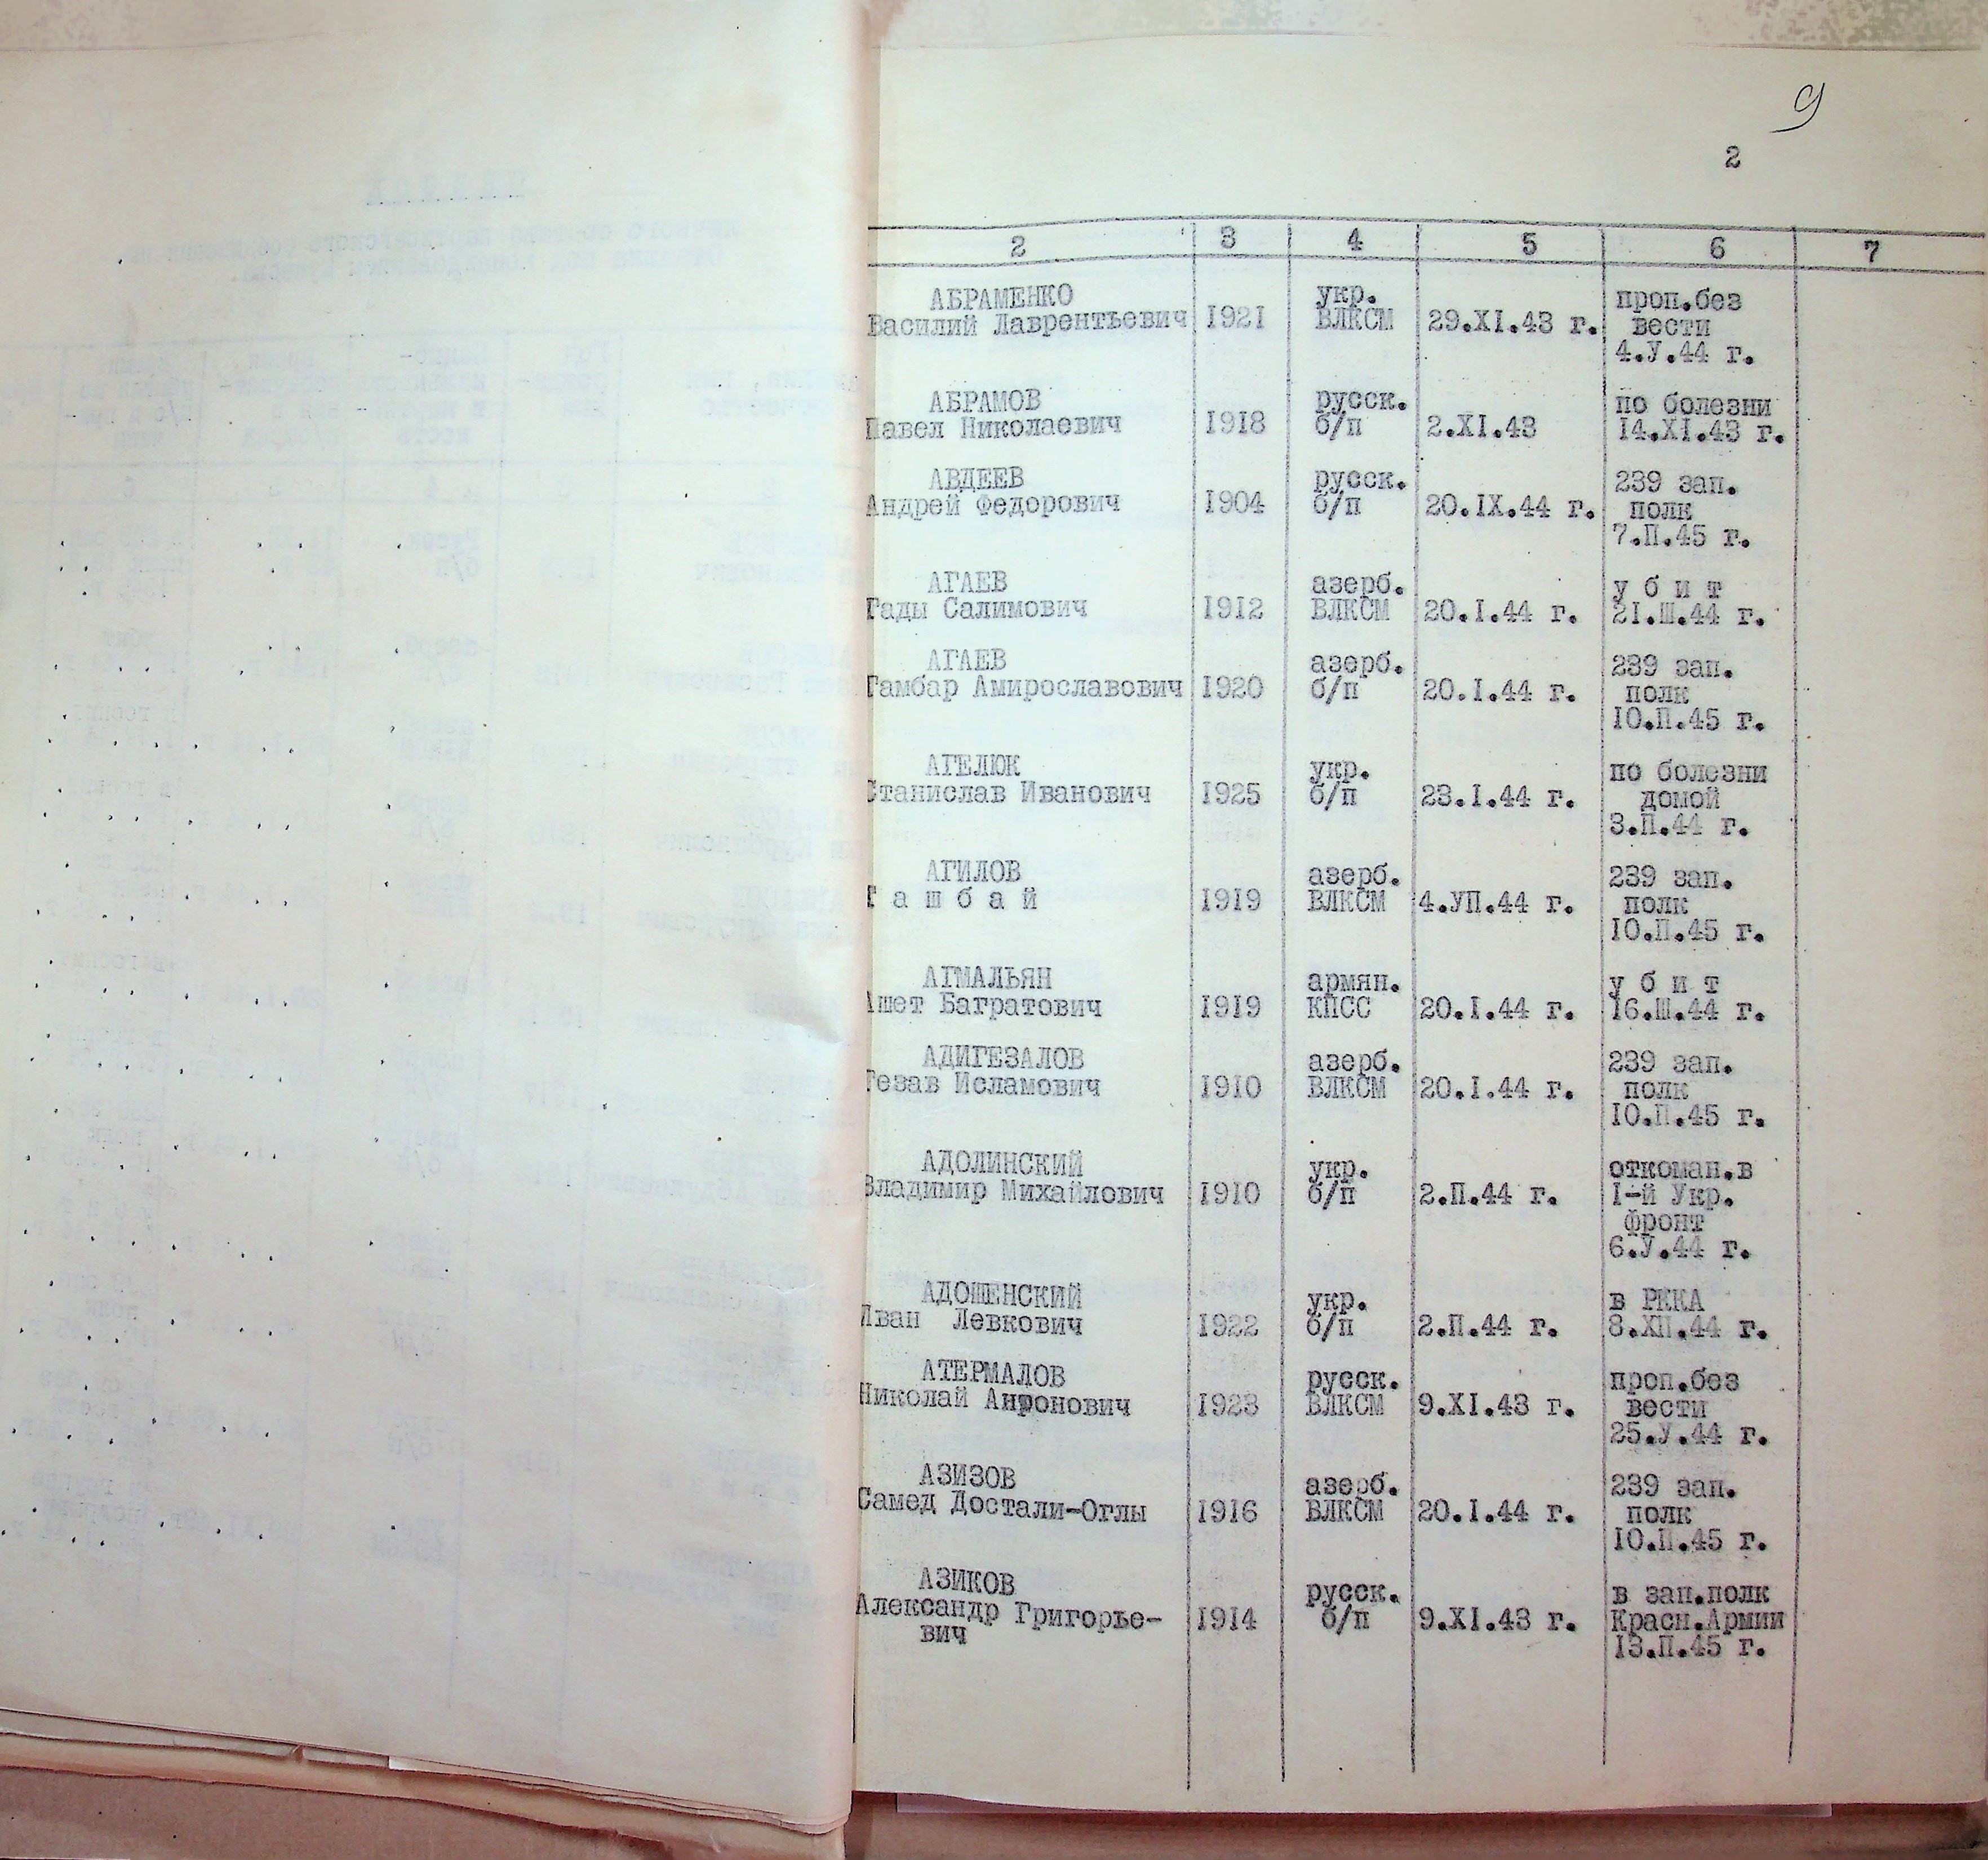 9
2
2 3 4 5 6 7
АБРАМЕНКО укр. проп.без
Василий Лаврентьевич 1921 ВЛКСМ 29.XI.43 г. вести
4.У.44 г.
АБРАМОВ русск. по болезни
Павел Николаевич 1918 б/п 2.XI.43 14.XI.43 г.
АВДЕЕВ русск. 239 зап.
Андрей Федорович 1904 б/п 20.IX.44 г. полк
7.П.45 г.
АГАЕВ азерб. у б и т
Гады Салимович 1912 ВЛКСМ 20.I.44 г. 21.Ш.44 г.
АГАЕВ азерб. 239 зап.
Гамбар Амирославович 1920 б/п 20.I.44 г. полк
10.П.45 г.
АГЕЛЮК укр. по болезни
Станислав Иванович 1925 б/п 23.I.44 г. домой
3.П.44 г.
АГИЛОВ азерб. 239 зап.
Г а ш б а й 1919 ВЛКСМ 4.УП.44 г. полк
10.П.45 г.
АГМАЛЬЯН армян. у б и т
Ашет Багратович 1919 КПСС 20.I.44 г. 16.Ш.44 г.
АДИГЕЗАЛОВ азерб. 239 зап.
Гезав Исламович 1910 ВЛКСМ 20.I.44 г. полк
10.П.45 г.
АДОЛИНСКИЙ укр. откоман.в
Владимир Михайлович 1910 б/п 2.П.44 г. I-й Укр.
фронт
6.У.44 г.
АДОШЕНСКИЙ укр. в РККА
Иван Левкович 1922 б/п 2.П.44 г. 8.ХП.44 г.
АТЕРМАЛОВ русск. проп.без
Николай Андронович 1923 ВЛКСМ 9.XI.43 г. вести
25.У.44 г.
АЗИЗОВ азерб. 239 зап.
Самед Достали-Оглы 1916 ВЛКСМ 20.I.44 г. полк
10.П.45 г.
АЗИКОВ русск. в зап.полк
Александр Григорье- 1914 б/п 9.XI.43 г. Красн.Армии
вич 13.П.45 г.